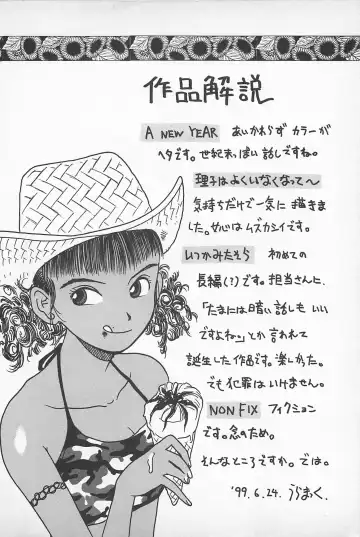 作品解説
A NEW YEAR あいかわらず カラーが
ヘタです。世紀末っぽい話しですね。
理子はよくいなくなって〜
気持ちだけで一気に描きま
した。女心はムズカシイです。
いつかみたそら 初めての
長編(?)です。担当さんに、
「たまには暗い話しもいい
ですよねぃ」とか言われて
誕生した作品です。楽しかった。
でも犯罪はいけません。
NON FIX フィクション
です。念のため。
そんなところですか。では。
'99.6.24. うらまっく.